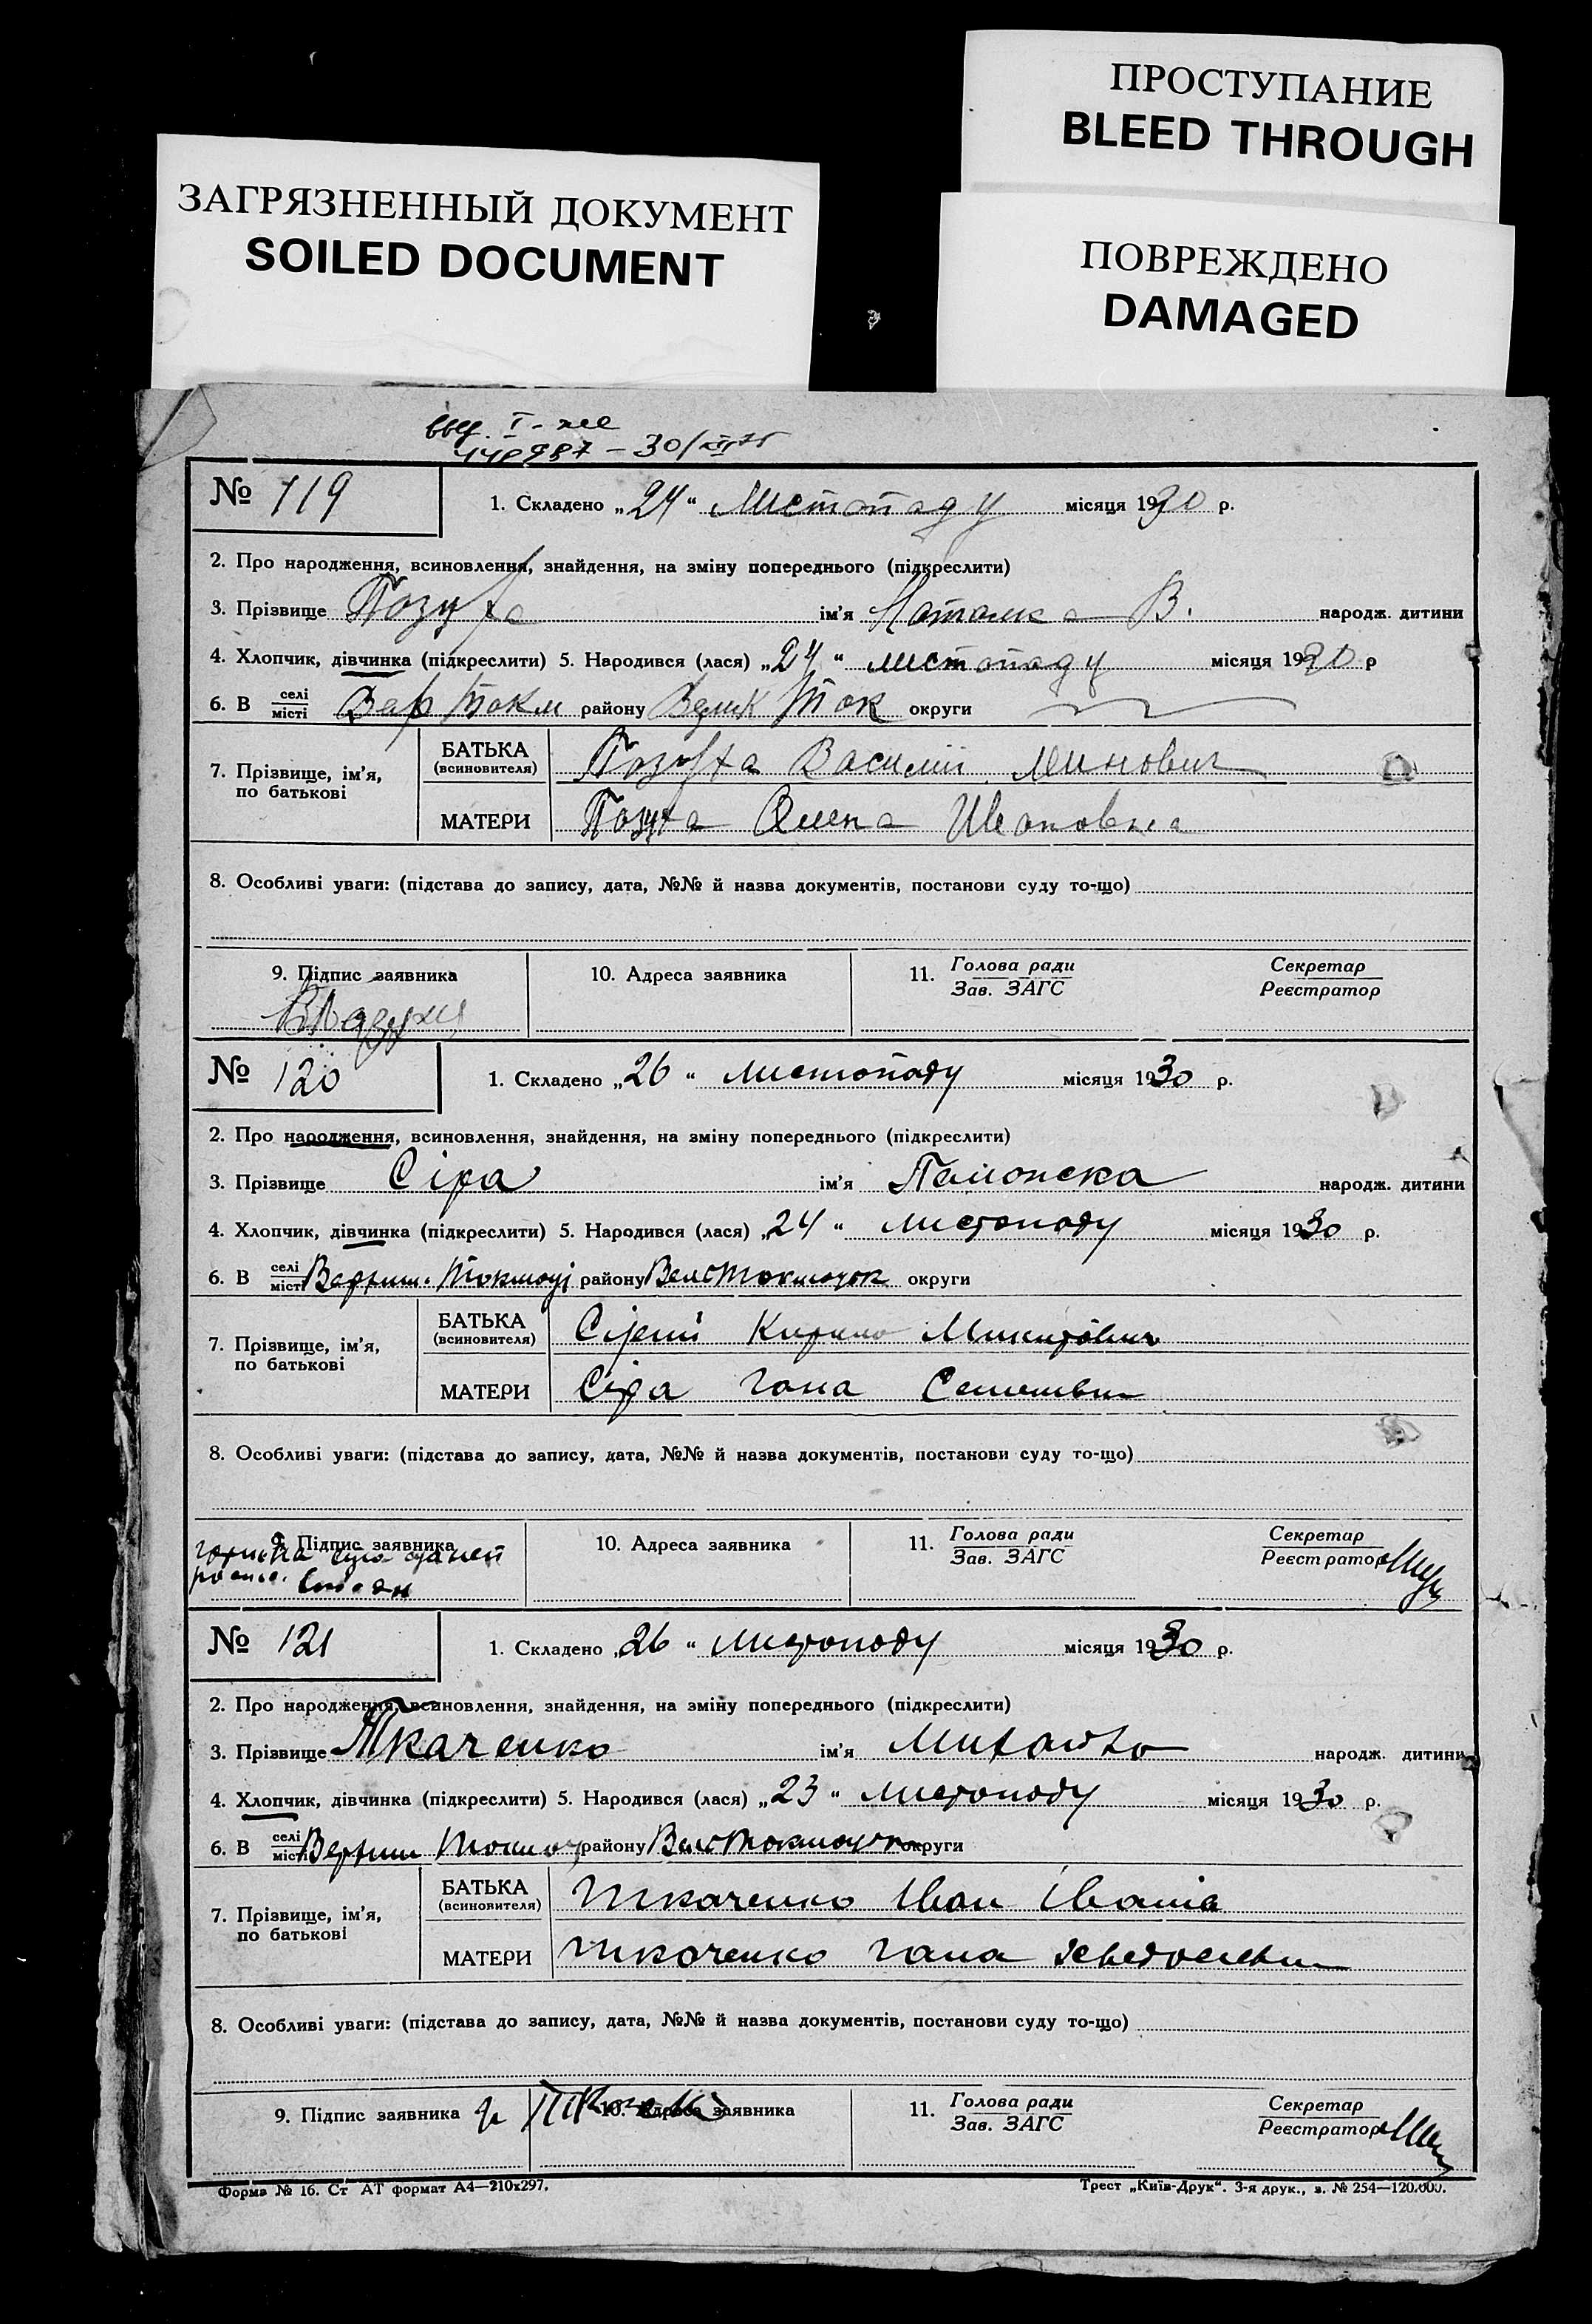 ПРОСТУПАНИЕ
BLEED THROUGH
ЗАГРЯЗНЕННЫЙ ДОКУМЕНТ
SOILED DOCUMENT
ПОВРЕЖДЕНО
DAMAGED
№ 119 1. Складено „24“ Листопаду місяця 1930 р.
2. Про народження, всиновлення, знайдення, на зміну попереднього (підкреслити)
3. Прізвище Позуха ім'я Наталка В. народж. дитини
4. Хлопчик, дівчинка (підкреслити) 5. Народився (лася) „24“ листопаду місяця 1930 р
6. В селі/місті Вер Токм району Велик Ток округи
7. Прізвище, ім'я, по батькові
БАТЬКА (всиновителя) Позуха Василій Минович
МАТЕРИ Позуха Олена Ивановна
8. Особливі уваги: (підстава до запису, дата, №№ й назва документів, постанови суду то-що)
9. Підпис заявника 10. Адреса заявника 11. Голова ради / Зав. ЗАГС Секретар / Реєстратор
№ 120 1. Складено „26“ листопаду місяця 1930 р.
2. Про народження, всиновлення, знайдення, на зміну попереднього (підкреслити)
3. Прізвище Сіра ім'я народж. дитини
4. Хлопчик, дівчинка (підкреслити) 5. Народився (лася) „24“ листопаду місяця 1930 р.
6. В селі/місті району округи
7. Прізвище, ім'я, по батькові
БАТЬКА (всиновителя) Сірий Кирило Микитович
МАТЕРИ Сіра Гана
8. Особливі уваги: (підстава до запису, дата, №№ й назва документів, постанови суду то-що)
9. Підпис заявника 10. Адреса заявника 11. Голова ради / Зав. ЗАГС Секретар / Реєстратор
№ 121 1. Складено „26“ листопаду місяця 1930 р.
2. Про народження, всиновлення, знайдення, на зміну попереднього (підкреслити)
3. Прізвище Ткаченко ім'я Михайло народж. дитини
4. Хлопчик, дівчинка (підкреслити) 5. Народився (лася) „23“ листопаду місяця 1930 р.
6. В селі/місті району округи
7. Прізвище, ім'я, по батькові
БАТЬКА (всиновителя) Ткаченко Иван
МАТЕРИ Ткаченко Гана
8. Особливі уваги: (підстава до запису, дата, №№ й назва документів, постанови суду то-що)
9. Підпис заявника 10. Адреса заявника 11. Голова ради / Зав. ЗАГС Секретар / Реєстратор
Форма № 16. Ст АТ формат А4—210х297. Трест „Київ-Друк“. 3-я друк., з. № 254—120.000.